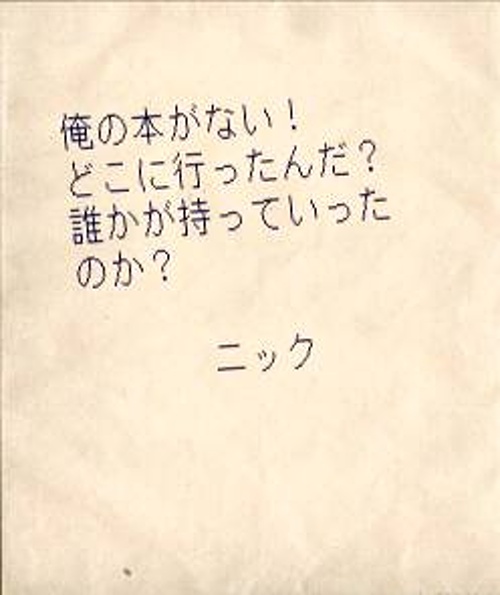 俺の本がない！
どこに行ったんだ？
誰かが持っていった
のか？
ニック